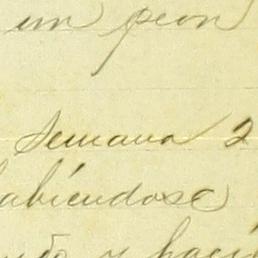 un peon
Semana 2
habiéndose
y